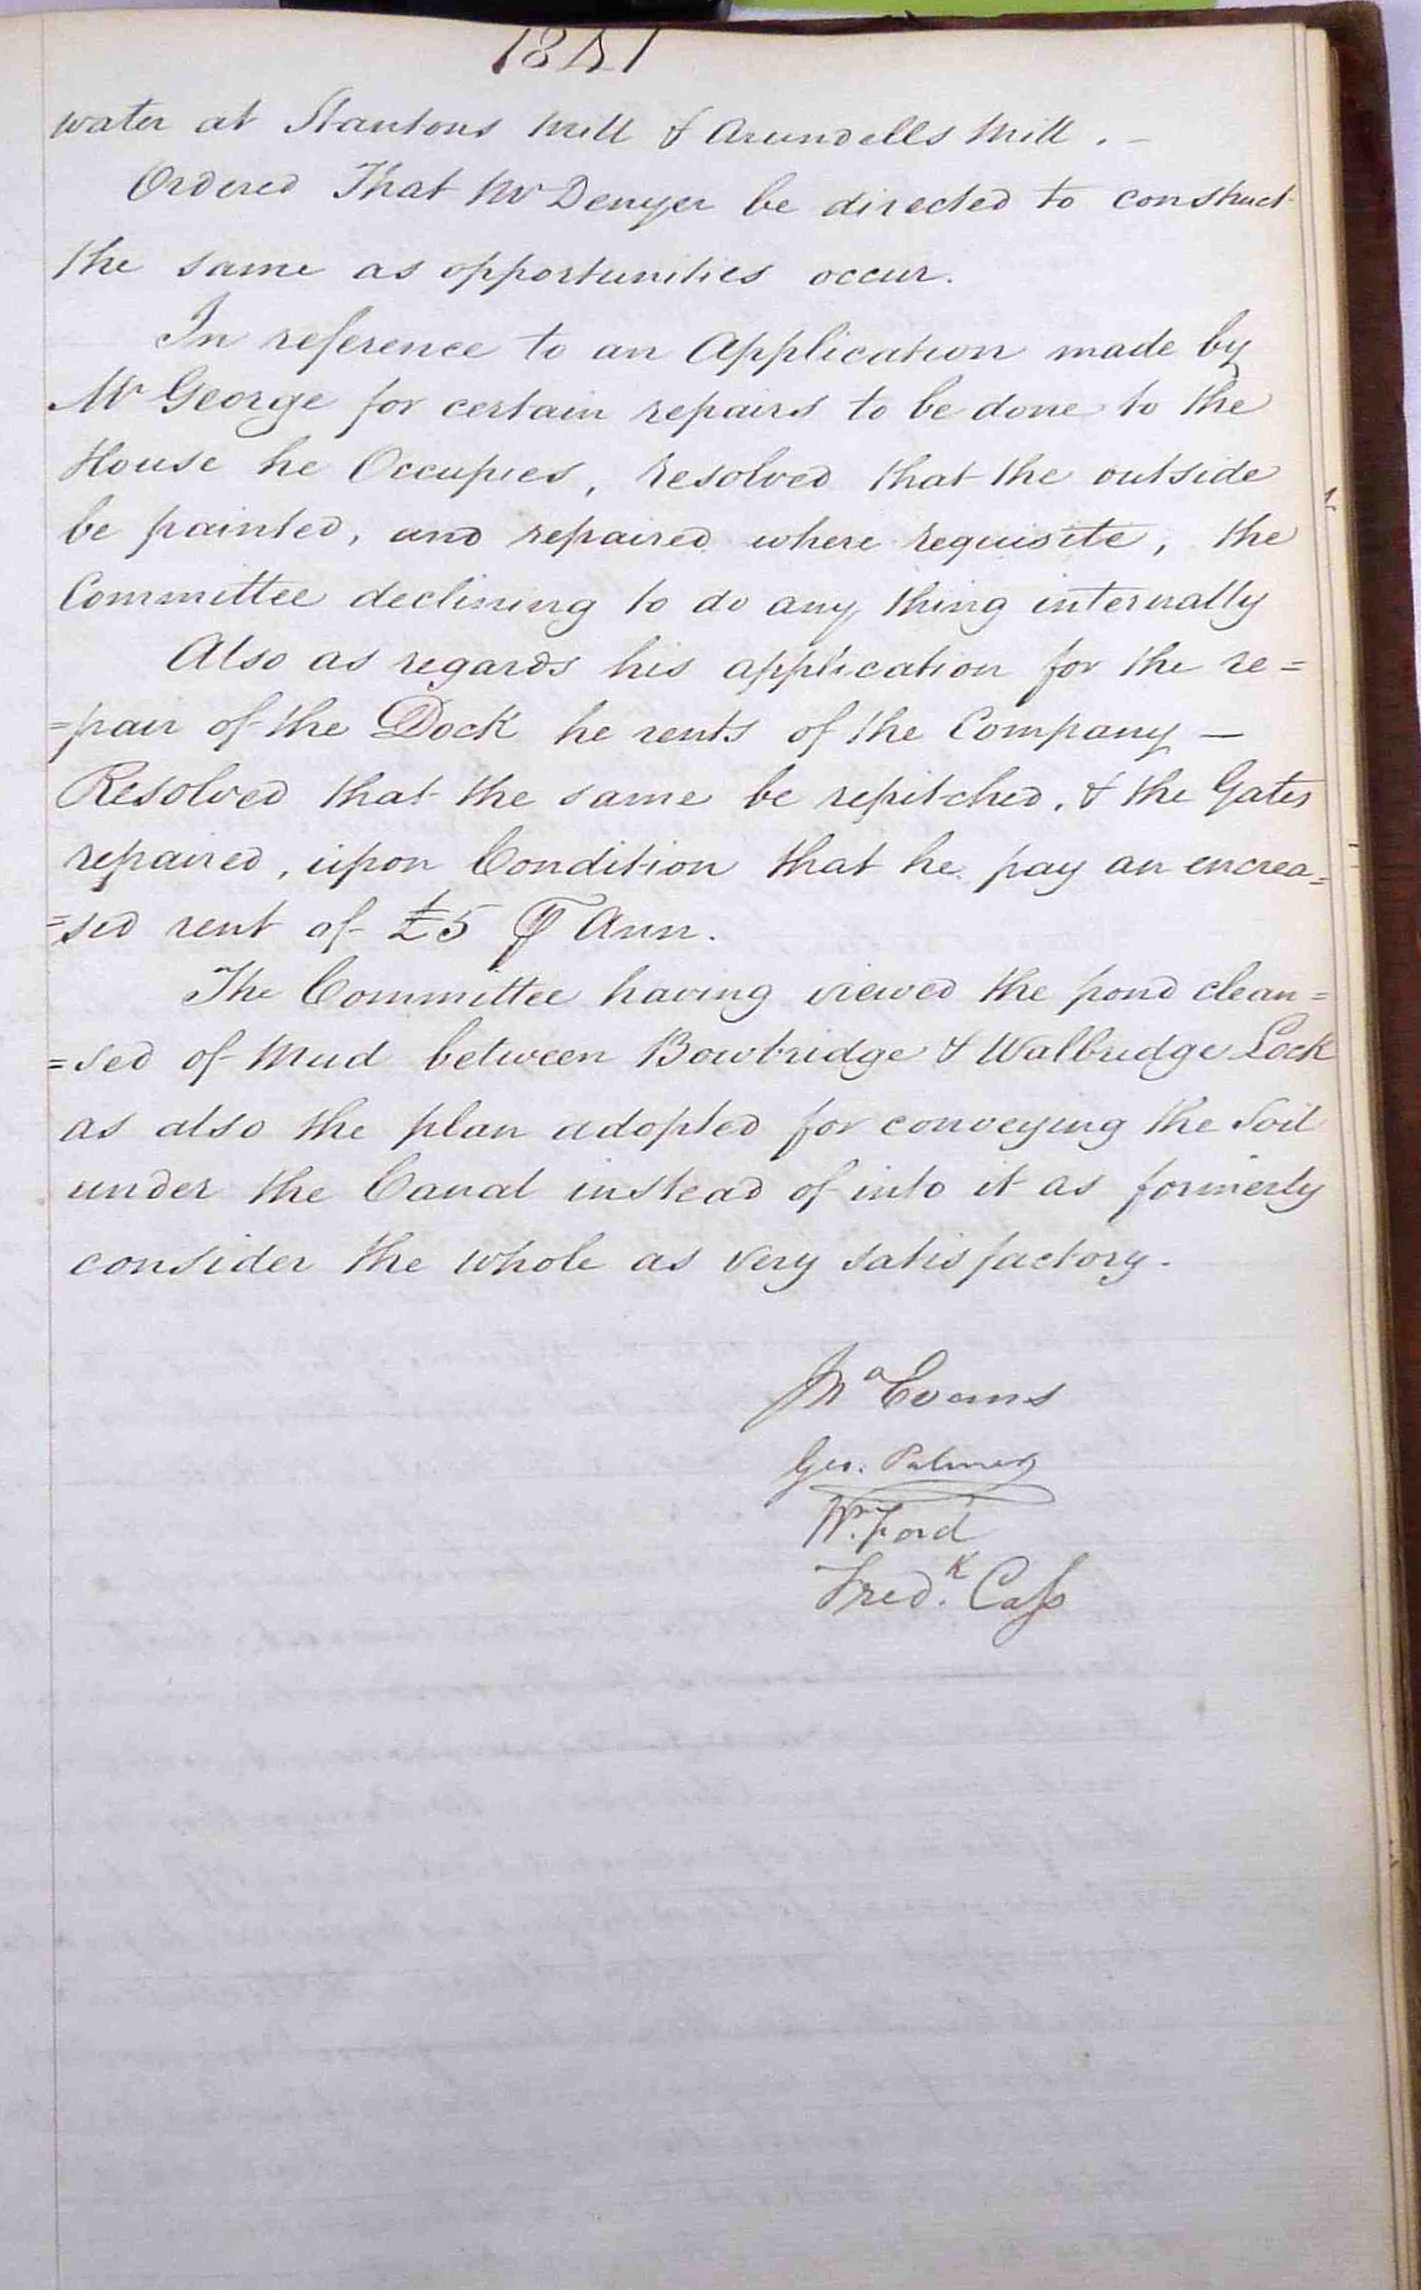 1851
water at Stantons Mill & Arundells Mill. –
Ordered That Mr Denyer be directed to construct
the same as opportunities occur.
In reference to an Application made by
Mr George for certain repairs to be done to the
House he Occupies, resolved that the outside
be painted, and repaired where requisite, the
Committee declining to do any thing internally
Also as regards his application for the re=
=pair of the Dock he rents of the Company —
Resolved that the same be repitched, & the Gates
repaired, upon Condition that he pay an encrea=
=sed rent of £5 ⅌ Ann.
The Committee having viewed the pond clean=
=sed of Mud between Bowbridge & Walbridge Lock
as also the plan adopted for conveying the Soil
under the Canal instead of into it as formerly
consider the whole as very satisfactory.
Jno Evans
Geo. Palmer
Wm. Ford
Fredk. Cass